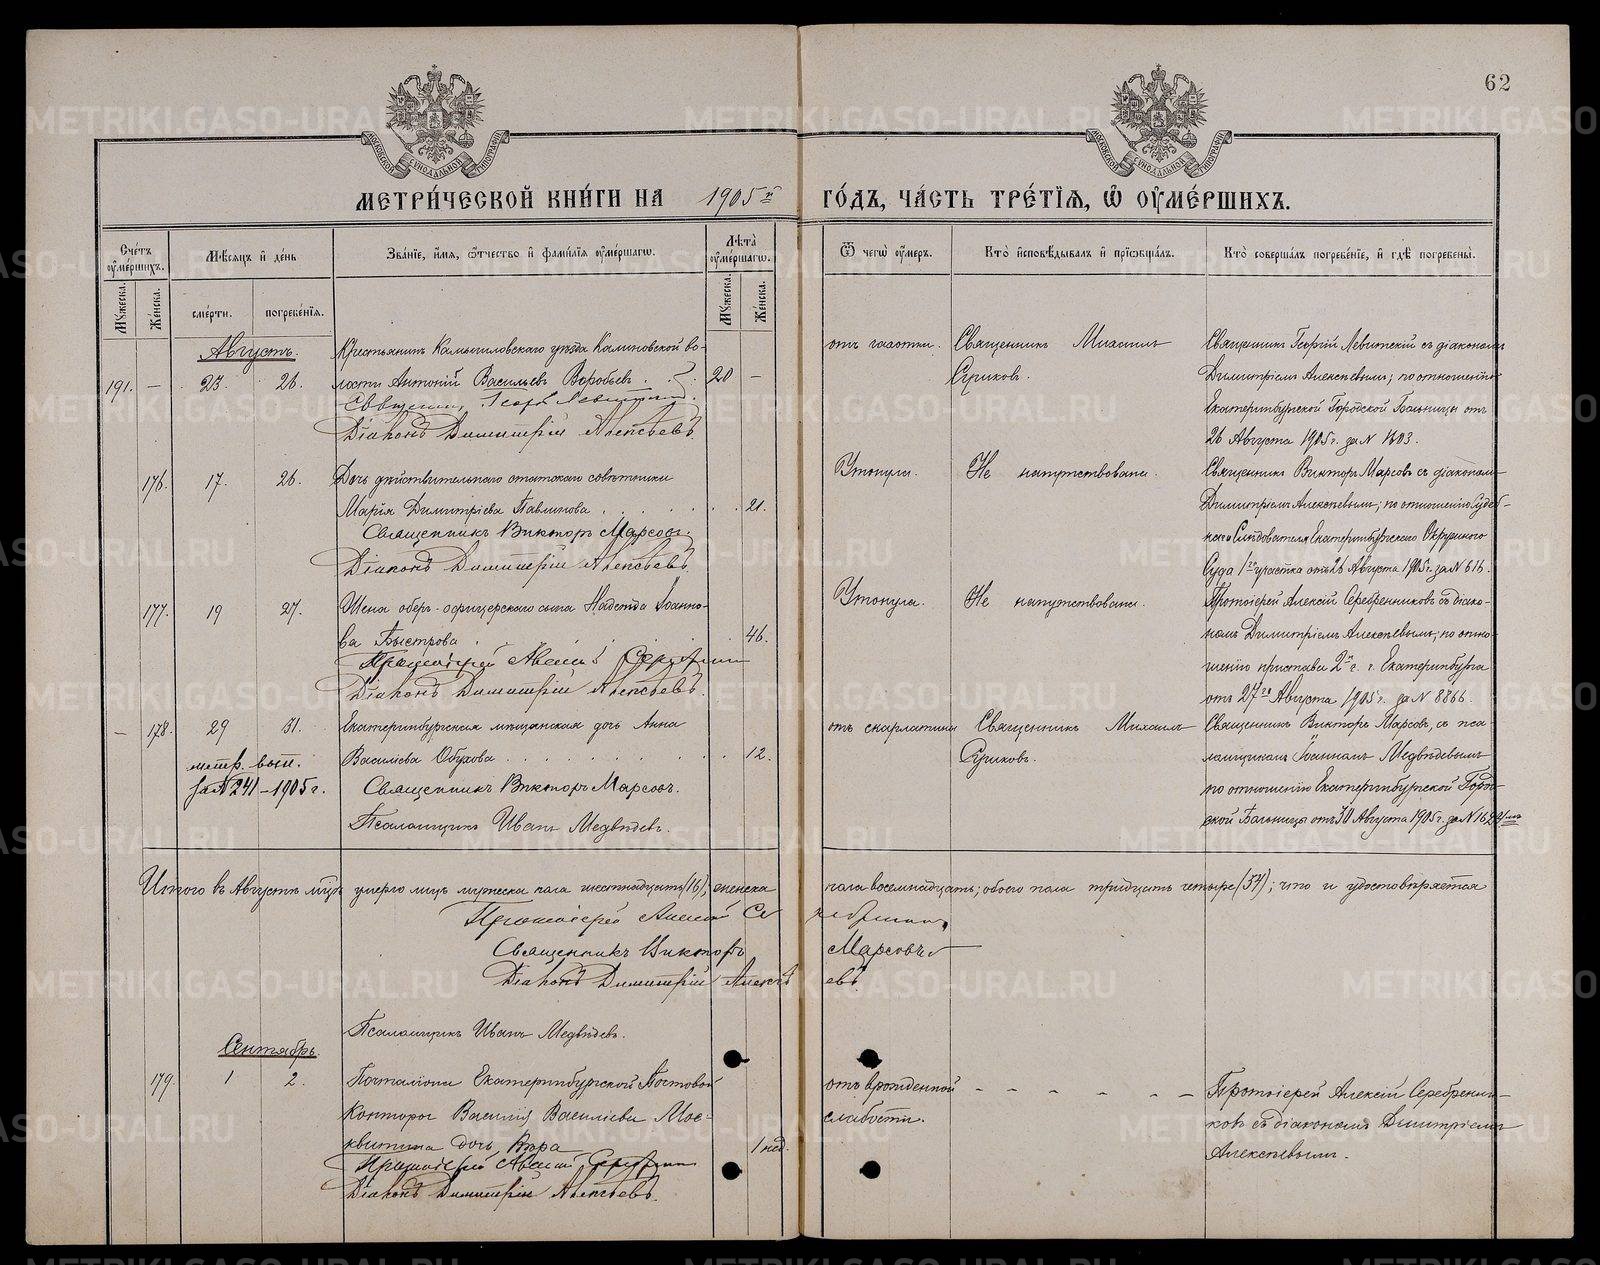 62
МЕТРИ́ЧЕСКОЙ КНИ́ГИ НА 1905й ГО́ДЪ, ЧА́СТЬ ТРЕ́ТІѦ, Ѽ ОУ҆МЕ́РШИХЪ.
МОСКОВСКОЙ СѴНОДАЛЬНОЙ ТИПОГРАФІИ
МОСКОВСКОЙ СѴНОДАЛЬНОЙ ТИПОГРАФІИ
Сче́тъ оу҆ме́ршихъ.
Мѣ́сѧцъ и҆ де́нь
Зва́нїе, и҆́мѧ, ѻ҆́тчество и҆ фами́лїѧ оу҆ме́ршагѡ.
Лѣ́та оу҆ме́ршагѡ.
Ѿ чегѡ̀ оу҆́меръ.
Кто̀ и҆сповѣ́дывалъ и҆ прїѡбща́лъ.
Кто̀ соверша́лъ погребе́нїе, и҆ гдѣ̀ погребены̀.
Мꙋ́жеска.
Же́нска.
сме́рти.
погребе́нїѧ.
Мꙋ́жеска.
Же́нска.
Августъ.
191. — 23. 26.
Крестьянинъ Камышловскаго уѣзда Калиновской во-
лости Антоній Васильевъ Воробьевъ . . 20 —
Священникъ Георгій Левитскій.
Діаконъ Димитрій Алексѣевъ.
Священникъ Михаилъ
Сушковъ.
Священникъ Георгій Левитскій съ діакономъ
Димитріемъ Алексѣевымъ; по отношенію
Екатеринбургской Городской Больницы отъ
26 Августа 1905 г. за № 1603.
176. 17. 26.
Дочь дѣйствительнаго статскаго совѣтника
Марія Димитріева Павлинова . . . . . 21.
Священникъ Викторъ Марсовъ.
Діаконъ Димитрій Алексѣевъ.
Утонула.
Не напутствована.
Священникъ Викторъ Марсовъ съ діакономъ
Димитріемъ Алексѣевымъ; по отношенію Судеб-
наго Слѣдователя Екатеринбургскаго Окружнаго
Суда 1го участка отъ 26 Августа 1905 г. за № 616.
177. 19 27.
Жена оберъ-офицерскаго сына Надежда Іоанно-
ва Быстрова . . . . . 46.
Протоіерей Алексій
Діаконъ Димитрій Алексѣевъ.
Утонула.
Не напутствована.
Протоіерей Алексій Серебренниковъ съ діако-
номъ Димитріемъ Алексѣевымъ; по отно-
шенію пристава 2й ч. г. Екатеринбурга
отъ 27го Августа 1905 г. за № 8866.
— 178. 29 31.
метр. вып.
за № 241 – 1905 г.
Екатеринбургская мѣщанская дочь Анна
Василіева Обухова . . . . . . . . 12.
Священникъ Викторъ Марсовъ.
Псаломщикъ Иванъ Медвѣдевъ.
отъ скарлатины
Священникъ Михаилъ
Сушковъ.
Священникъ Викторъ Марсовъ, съ пса
ломщикомъ Іоанномъ Медвѣдевымъ
по отношенію Екатеринбургской Город-
ской Больницы отъ 30 Августа 1905 г. за №
Итого въ Августѣ мцѣ умерло лицъ мужеска пола шестнадцать (16); женска пола восемнадцать; обоего пола тридцать четыре (34); что и удостовѣряется
Протоіерей Алексій
Священникъ Викторъ Марсовъ
Діаконъ Димитрій Алексѣевъ.
Псаломщикъ Иванъ Медвѣдевъ.
Сентябрь.
179. 1 2.
Почталіона Екатеринбургской Почтовой
Конторы Василія Василіева Мос-
квитина дочь Вѣра 1 нед.
Протоіерей Алексій
Діаконъ Димитрій Алексѣевъ.
отъ врожденной
слабости.
– – – – –
Протоіерей Алексій Серебренни-
ковъ съ діакономъ Димитріемъ
Алексѣевымъ.
METRIKI.GASO-URAL.RU